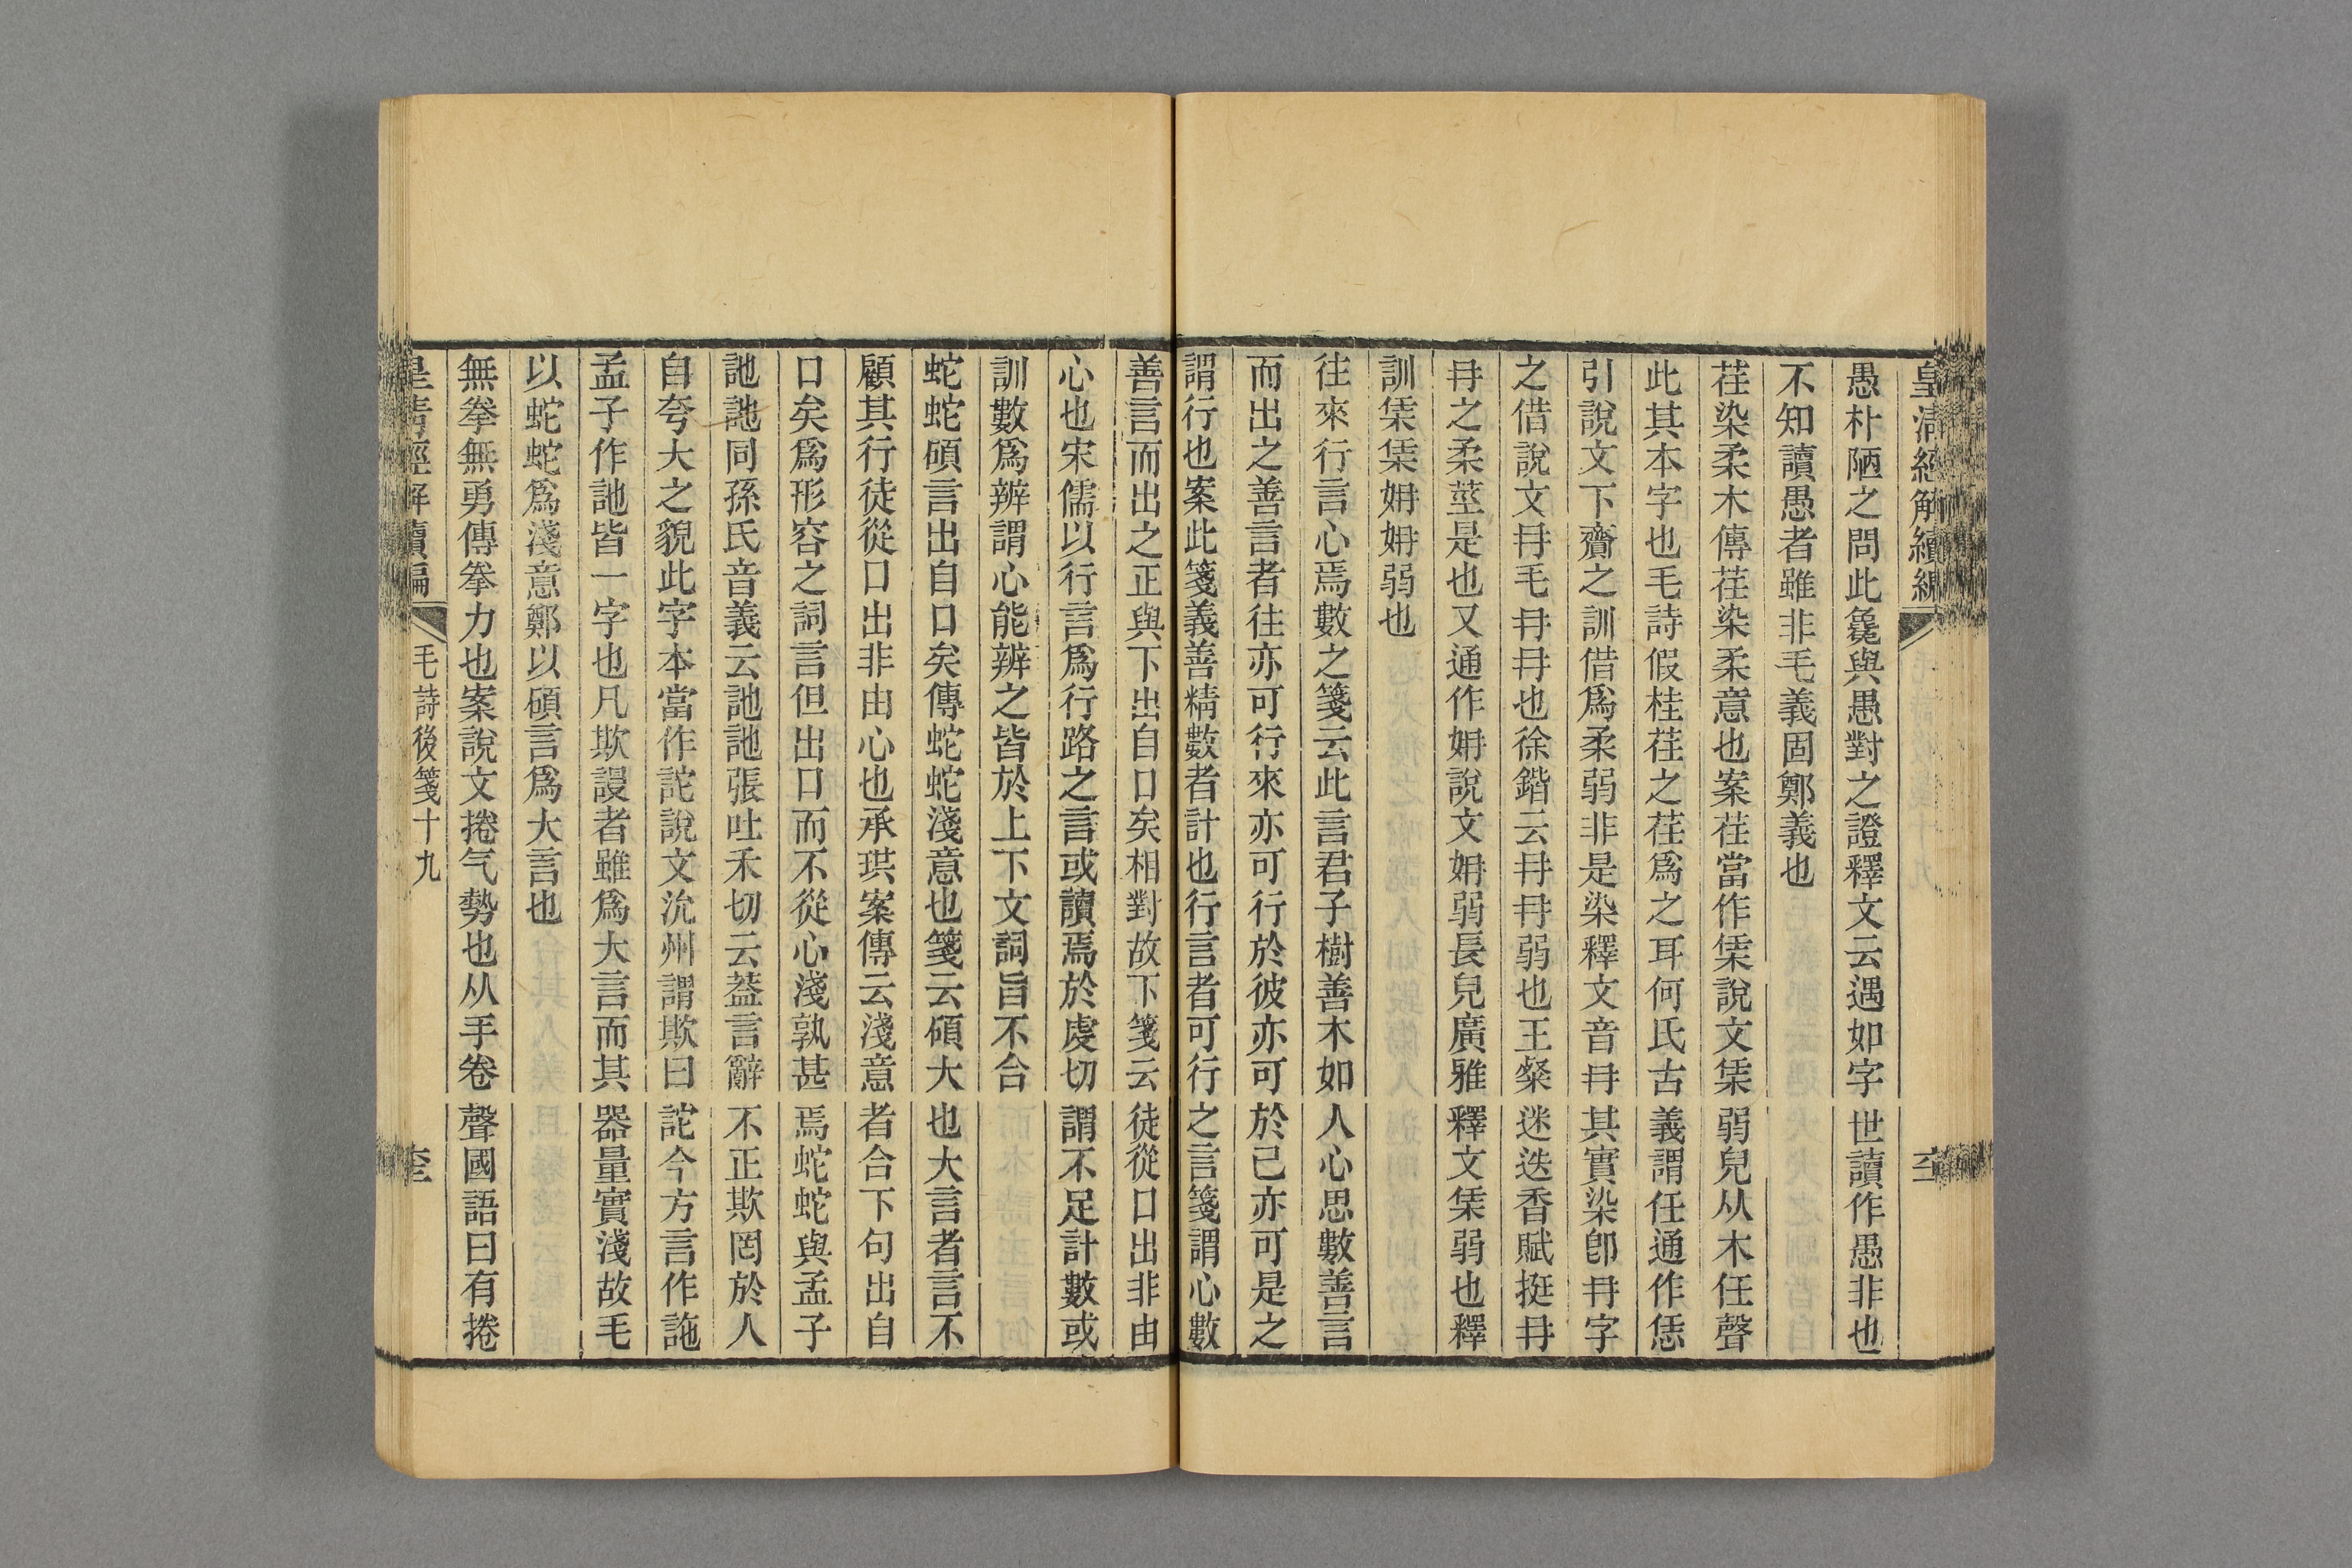 皇清經解續編
愚朴陋之問此毚與愚對之證釋文云遇如字世讀作愚非也
不知讀愚者雖非毛義固鄭義也
荏染柔木傳荏染柔意也案荏當作㭉說文㭉弱皃从木任聲
此其本字也毛詩假桂荏之荏爲之耳何氏古義謂任通作恁
引說文下齎之訓借爲柔弱非是染釋文音冄其實染卽冄字
之借說文冄毛冄冄也徐鍇云冄冄弱也王粲迷迭香賦挺冄
冄之柔莖是也又通作姌說文姌弱長皃廣雅釋文㭉弱也釋
訓㭉㭉姌姌弱也
往來行言心焉數之箋云此言君子樹善木如人心思數善言
而出之善言者往亦可行來亦可行於彼亦可於己亦可是之
謂行也案此箋義善精數者計也行言者可行之言箋謂心數
善言而出之正與下出自口矣相對故下箋云徒從口出非由
心也宋儒以行言爲行路之言或讀焉於虔切謂不足計數或
訓數爲辨謂心能辨之皆於上下文詞旨不合
蛇蛇碩言出自口矣傳蛇蛇淺意也箋云碩大也大言者言不
顧其行徒從口出非由心也承珙案傳云淺意者合下句出自
口矣爲形容之詞言但出口而不從心淺孰甚焉蛇蛇與孟子
訑訑同孫氏音義云訑訑張吐禾切云葢言辭不正欺罔於人
自夸大之貌此字本當作詑說文沇州謂欺曰詑今方言作訑
孟子作訑皆一字也凡欺謾者雖爲大言而其器量實淺故毛
以蛇蛇爲淺意鄭以碩言爲大言也
無拳無勇傳拳力也案說文捲气勢也从手卷聲國語曰有捲
皇清經解續編 毛詩後箋十九